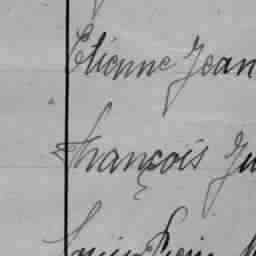 Etienne Jean
François Ju
Louis Pierre